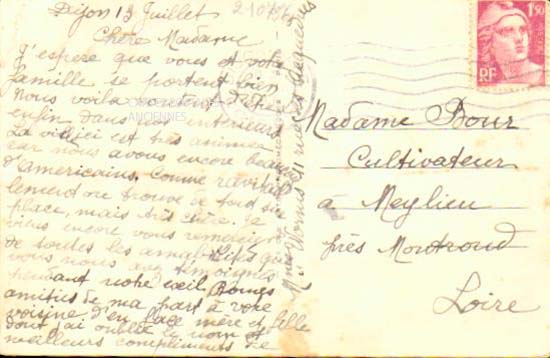 Dijon 13 Juillet
210756
Chère Madame
J'espère que vous et votre
famille se portent bien
Nous voila contents d'être
enfin dans nos intérieurs
ANCIENNES
La ville ici est très animée
car nous avons encore beaucoup
d'américains. Comme ravitail
lement on trouve de tout sur
place, mais très chère. Je
viens encore vous remercier
de toutes les amabilités que
vous nous avez témoignés
pendant notre exil. Bonnes
amitiés de ma part à votre
voisine d'en face mère et fille
dont j'ai oublié le nom et
meilleurs compliments de
1F50
RF
Madame Bour
Cultivateur
à Meylieu
près Montrond
Loire